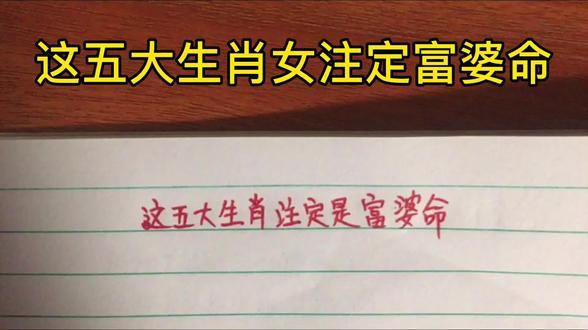 这五大生肖女注定富婆命
这五大生肖注定是富婆命